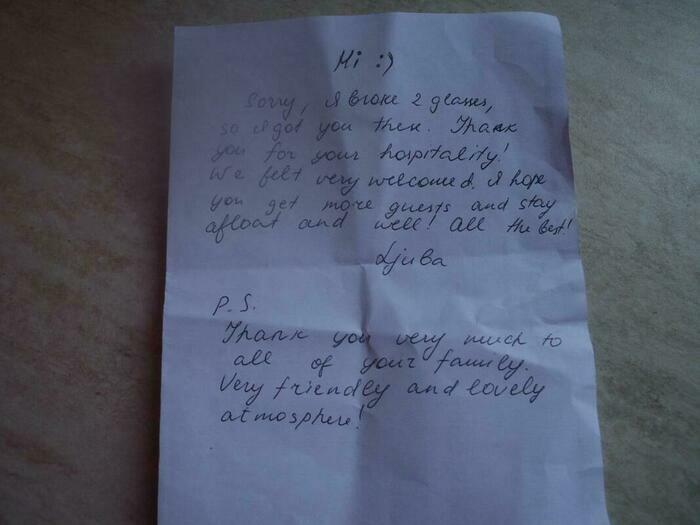 Hi :)
Sorry, I broke 2 glasses,
so I got you then. Thank
you for your hospitality!
We felt very welcomed. I hope
you get more guests and stay
afloat and well! All the best!
Ljuba
P.S.
Thank you very much to
all of your family.
Very friendly and lovely
atmosphere!